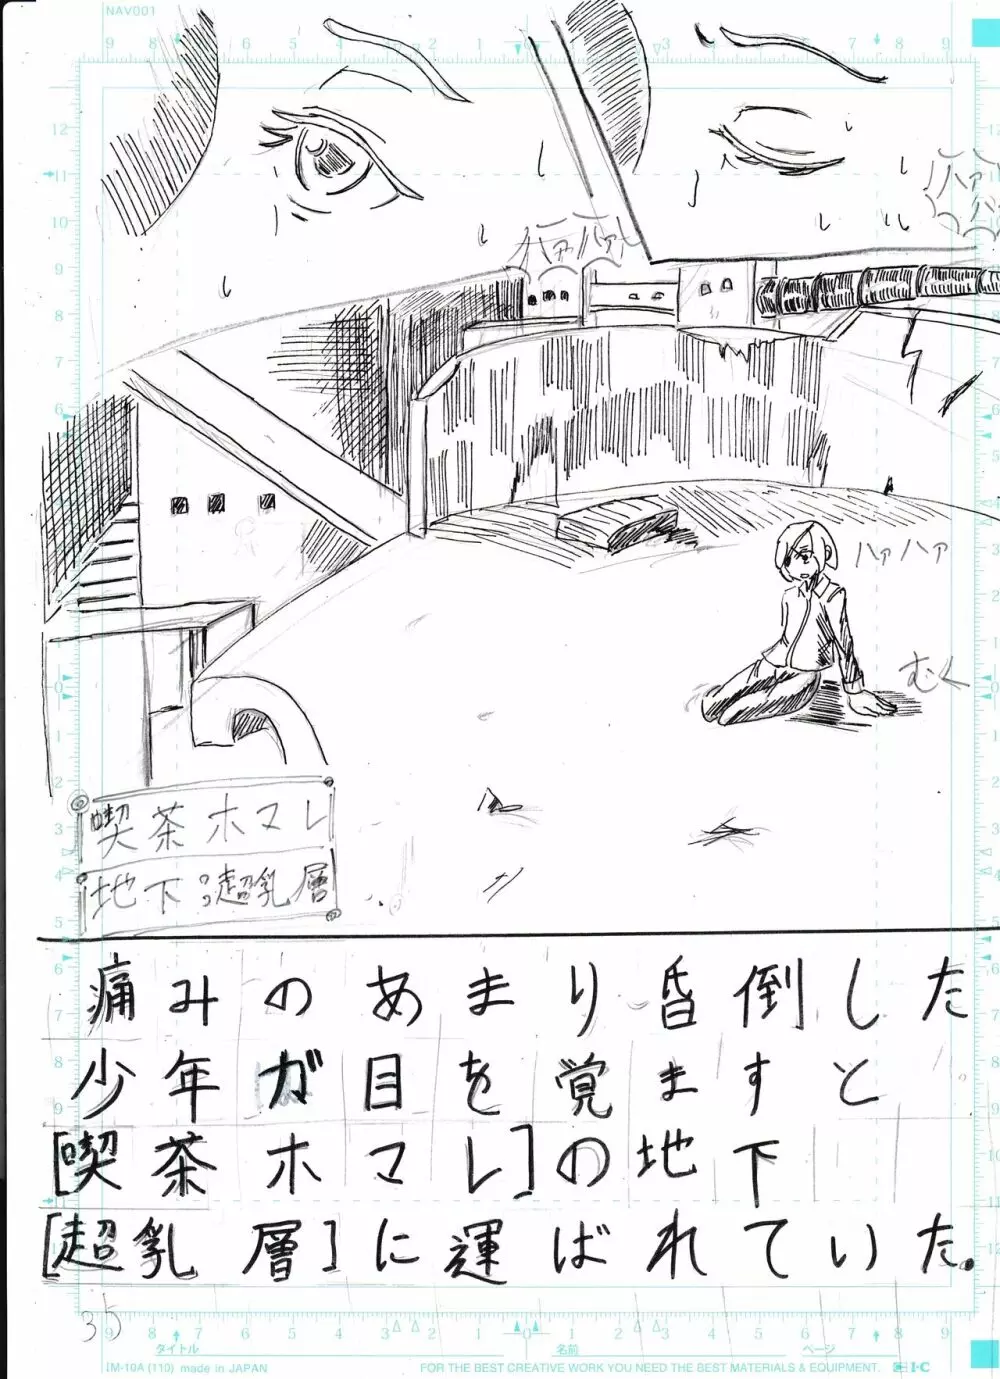 NAV001
ハァハァ
ハァ
ハァハァ
むく
喫茶ホマレ
地下:超乳層
痛みのあまり昏倒した
少年が目を覚ますと
[喫茶ホマレ]の地下
[超乳層]に運ばれていた。
35
タイトル
名前
ページ
IM-10A (110) made in JAPAN
FOR THE BEST CREATIVE WORK YOU NEED THE BEST MATERIALS & EQUIPMENT.
I·C